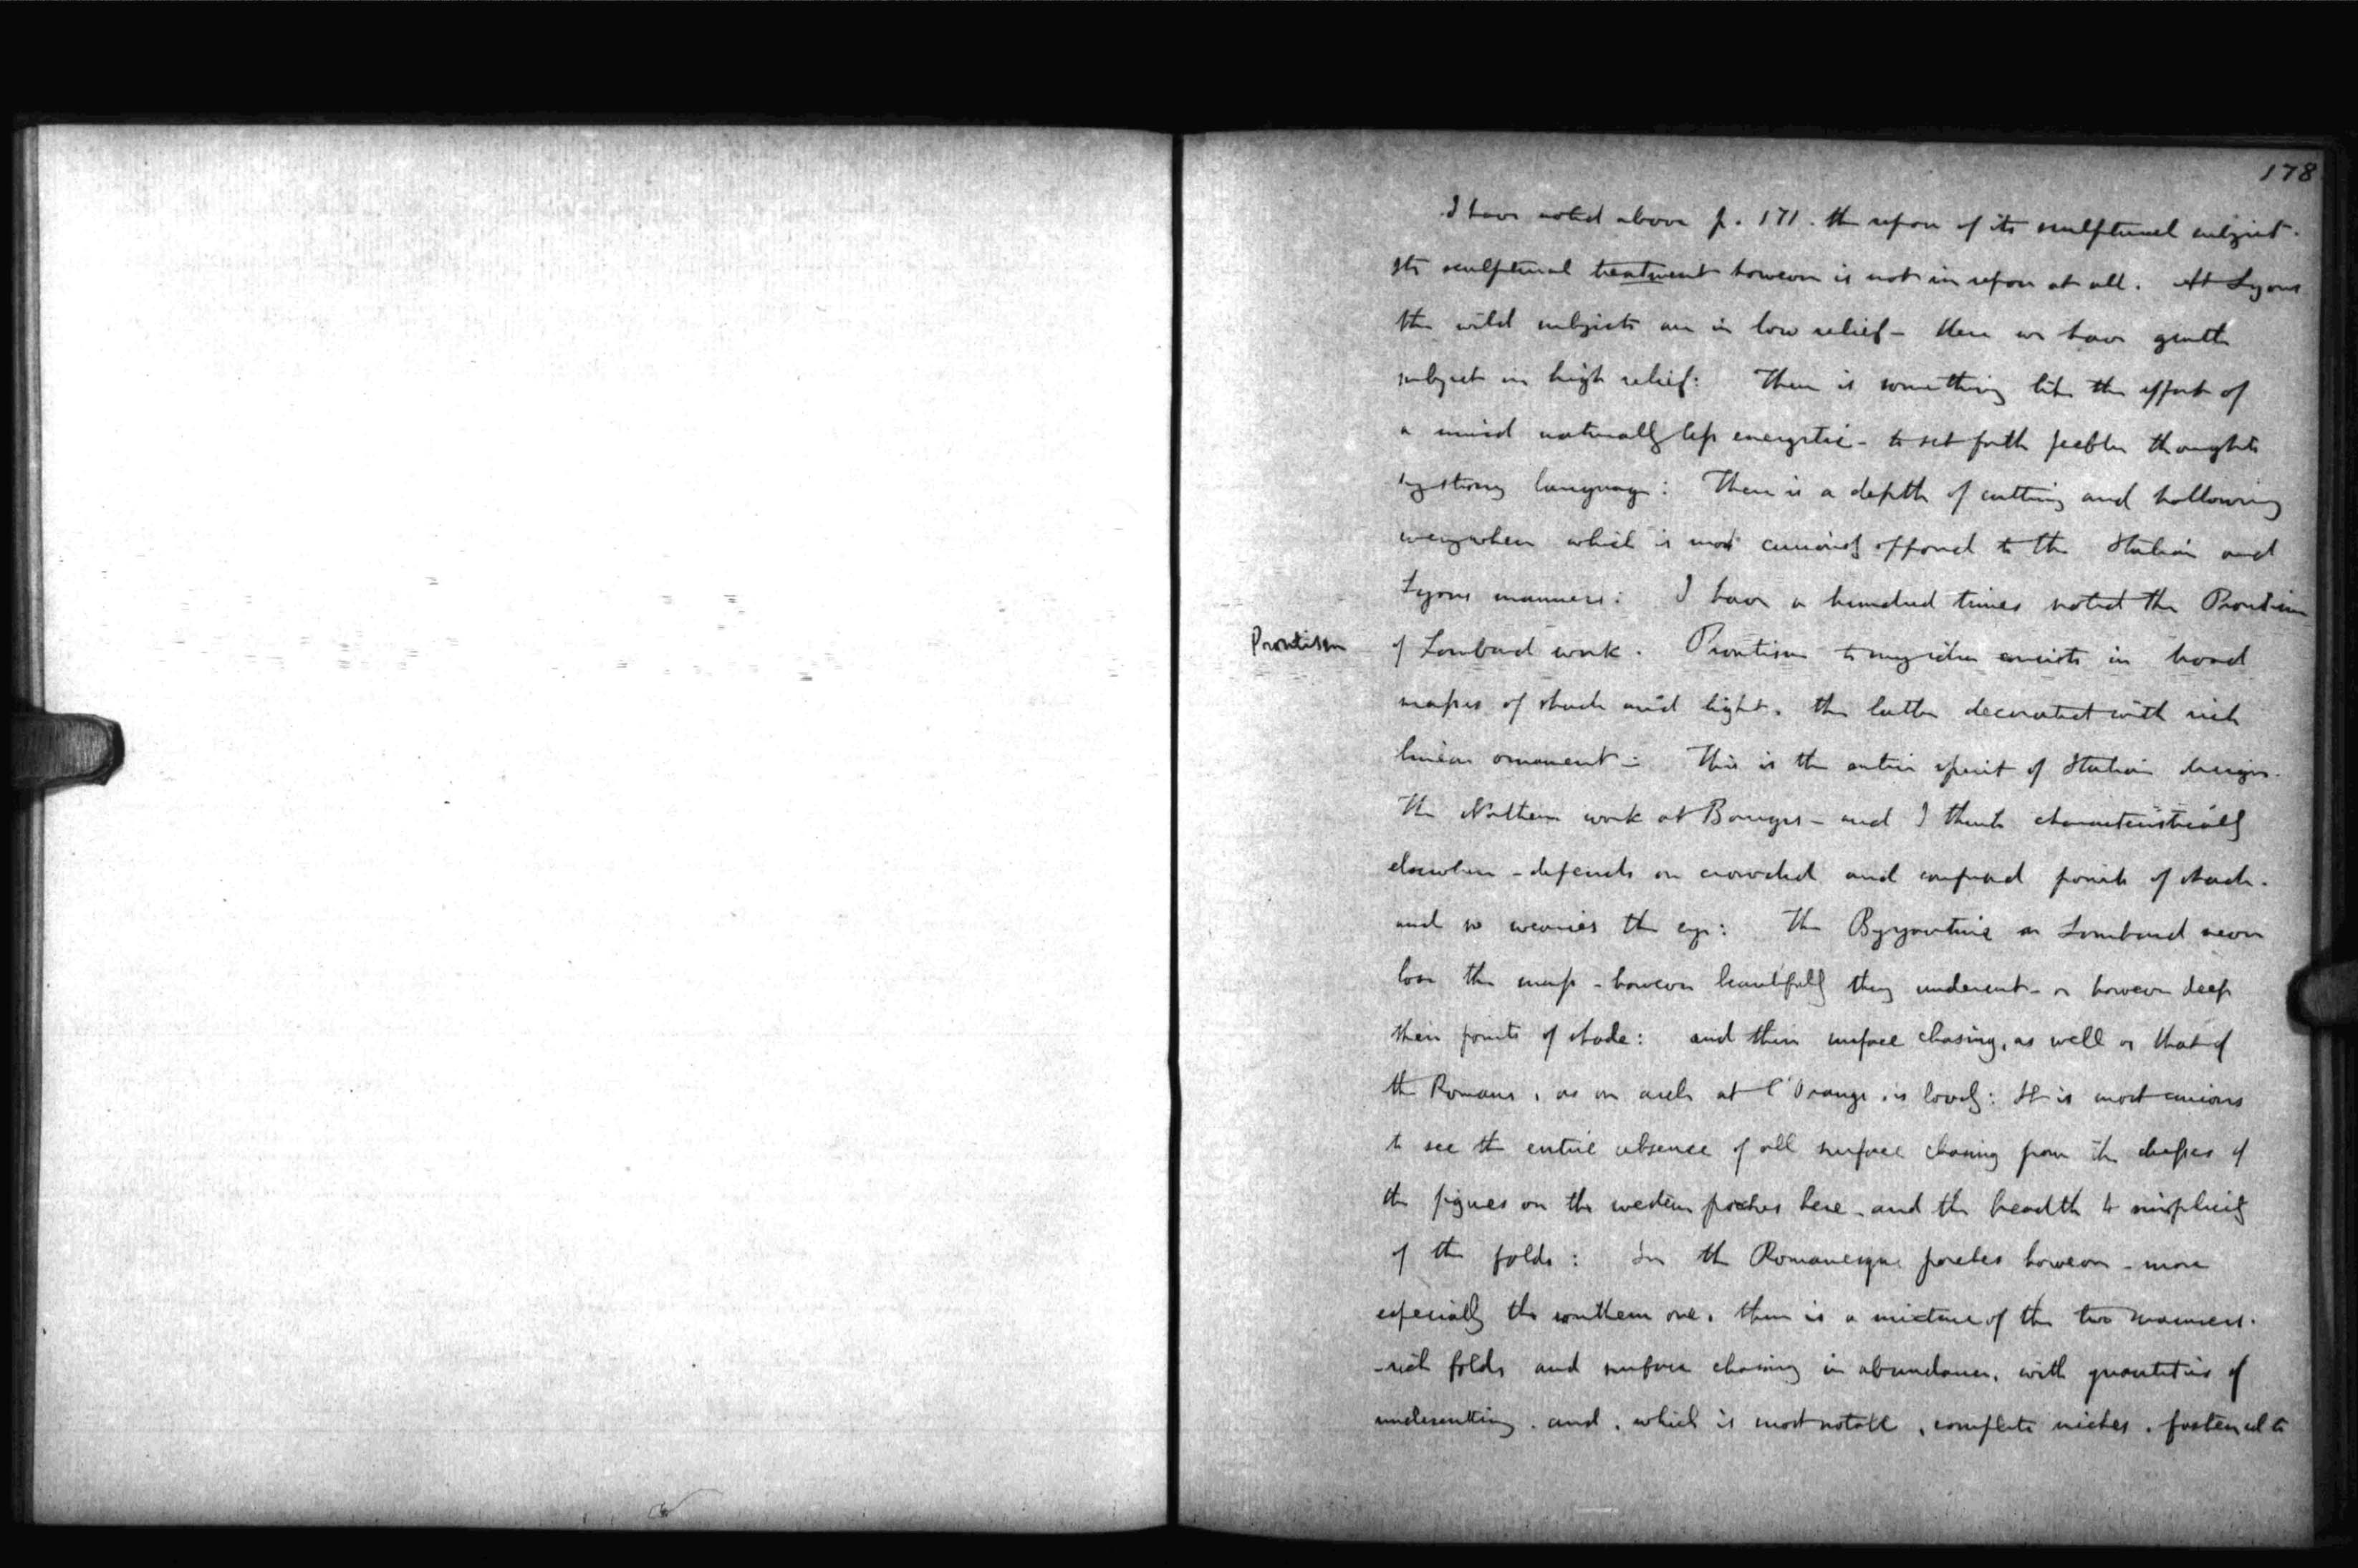 178
I have noted above p. 171. the repose of its sculptural subject.
Its sculptural treatment however is not in repose at all. At Lyons
the wild subjects are in low relief - Here we have gentle
subject in high relief: There is something like the effort of
a mind naturally less energetic - to set forth feebler thoughts
by strong language: There is a depth of cutting and hollowing
everywhere which is most curiously opposed to the Italian and
Lyons manners: I have a hundred times noted the Proutism
Proutism
of Lombard work. Proutism to my idea consists in broad
masses of shade and light. the latter decorated with rich
linear ornament: This is the entire spirit of Italian design.
The Northern work at Bourges - and I think characteristically
elsewhere - depends on crowded and confused points of shade.
and so wearies the eye: The Byzantine or Lombard never
lose the mass - however beautifully they undercut - or however deep
their points of shade: and their surface chasing, as well as that of
the Romans, as on arch at l'Orange, is lovely: It is most curious
to see the entire absence of all surface chasing from the dresses of
the figures on the western porches here - and the breadth & simplicity
of the folds: In the Romanesque porches however - more
especially the southern one, there is a mixture of the two manners.
- rich folds and surface chasing in abundance, with quantities of
undercutting. and, which is most notable, complete niches, fastened to